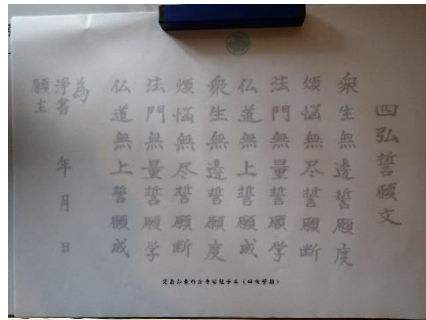 四弘誓願文
衆生無邊誓願度
煩悩無尽誓願断
法門無量誓願学
仏道無上誓願成
衆生無邊誓願度
煩悩無尽誓願断
法門無量誓願学
仏道無上誓願成
為
浄書 年 月 日
願主